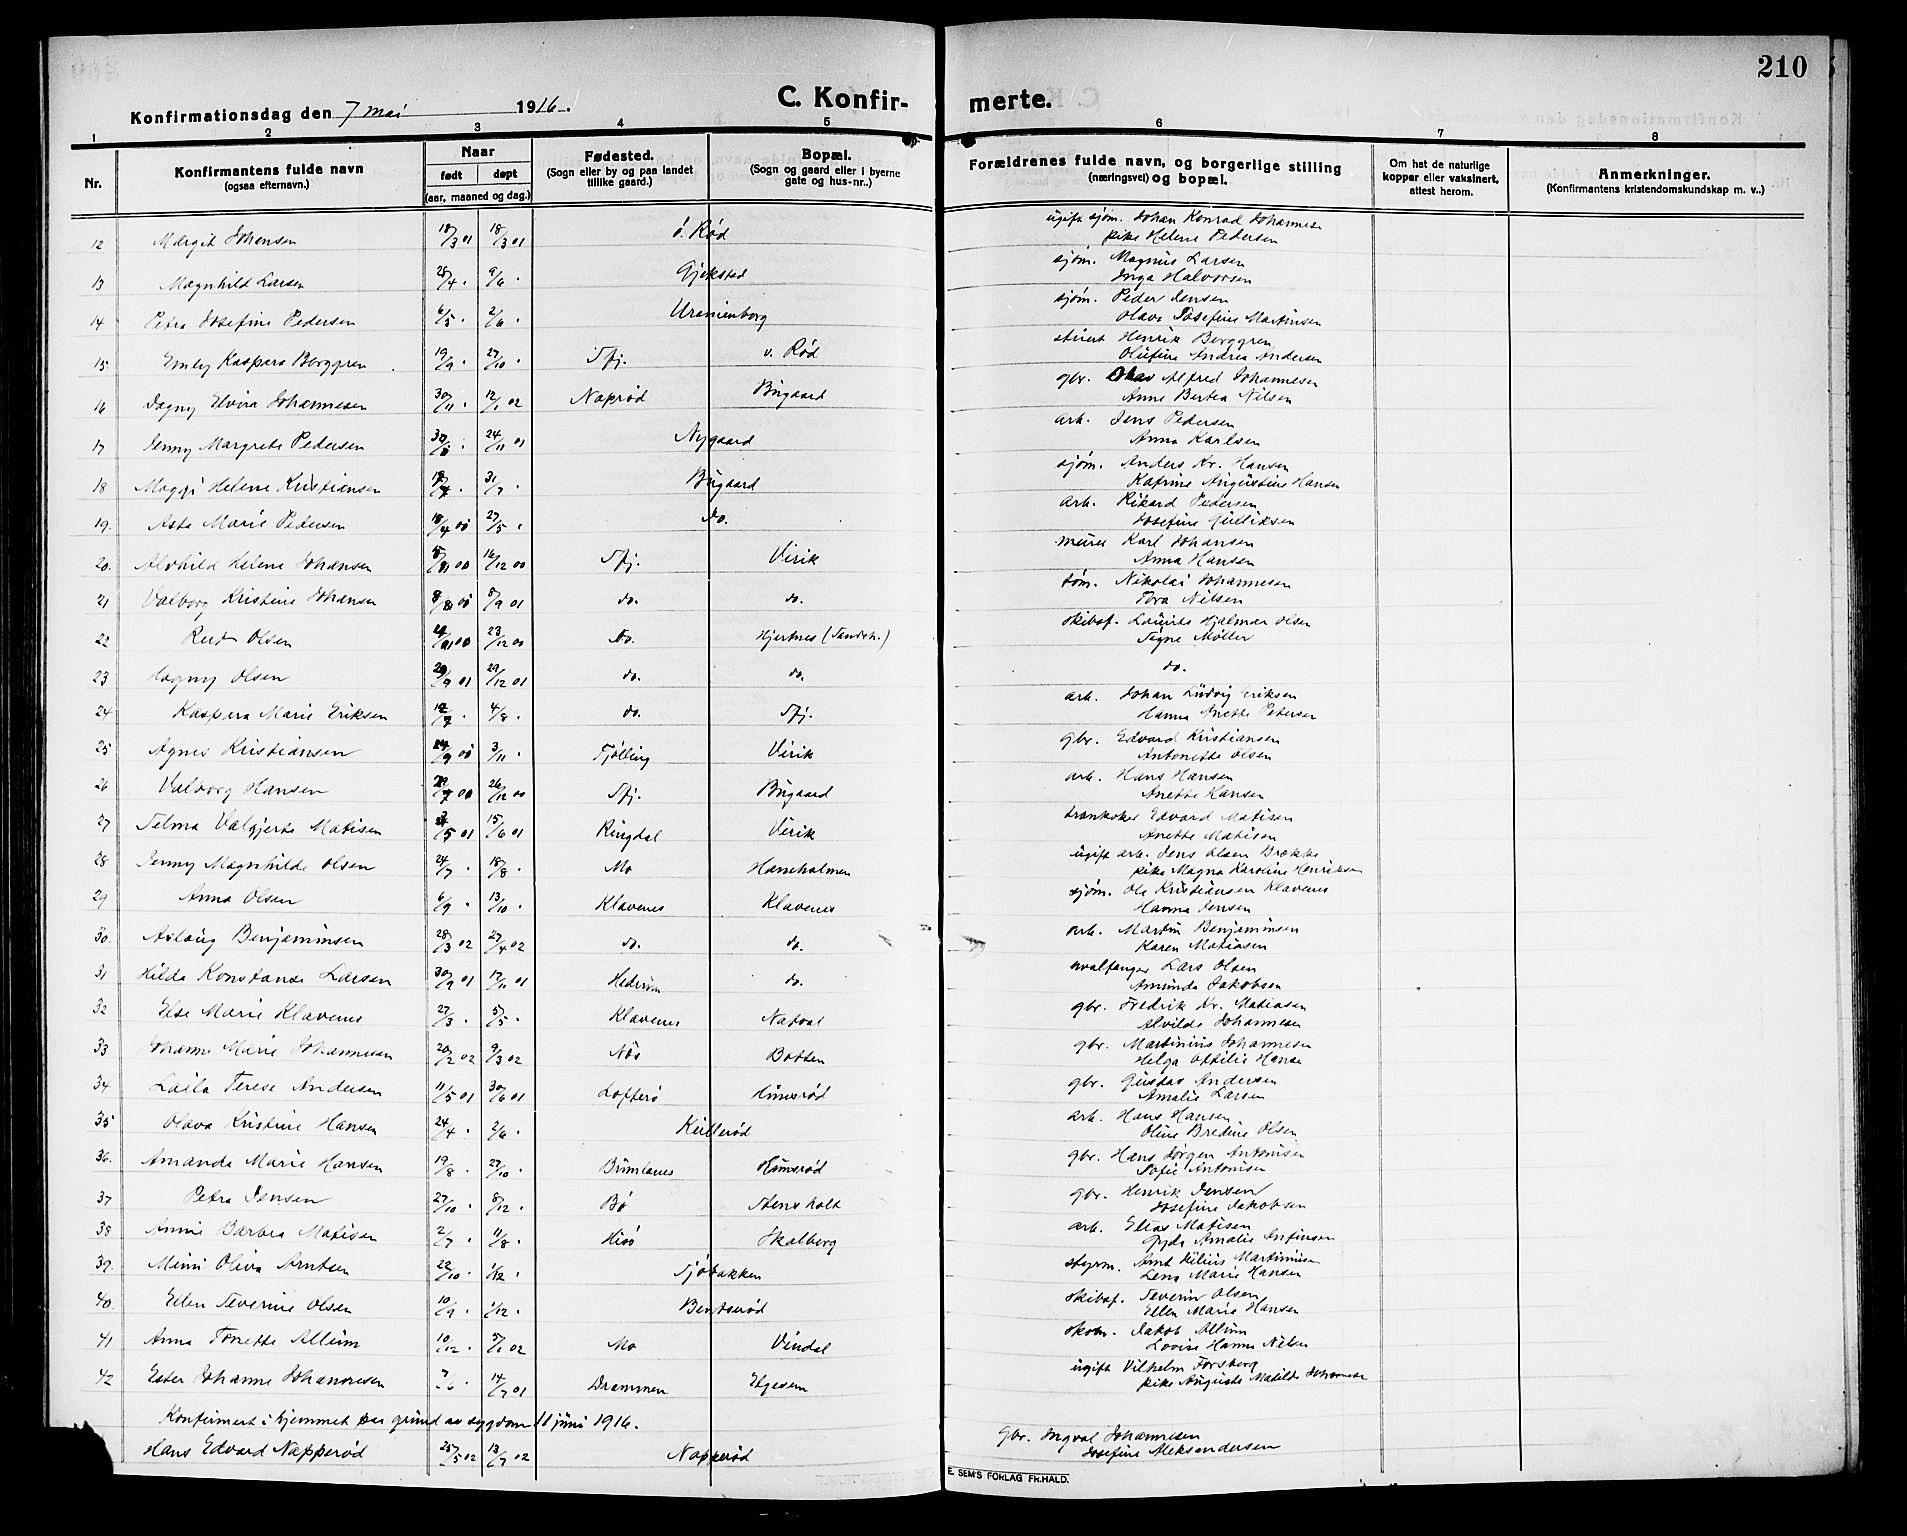 210
Konfirmationsdag den 7 mai 1916. C. Konfirmerte.
1 2 3 4 5 6 7 8
Nr. Konfirmantens fulde navn (ogsaa efternavn.) Naar født døpt (aar, maaned og dag.) Fødested. (Sogn eller by og paa landet tillike gaard.) Bopæl. (Sogn og gaard eller i byerne gate og hus-nr..) Forældrenes fulde navn, og borgerlige stilling (næringsvei) og bopæl. Om hat de naturlige kopper eller vaksinert, attest herom. Anmerkninger. (Konfirmantens kristendomskundskap m. v..)
12 Margit Johansen 18/3 01 18/3 01 ø. Rød ugift sjøm. Johan Konrad Johannesen
pike Helene Pedersen
13 Magnhild Larsen 28/4 . 9/6 . Gjekstad sjøm. Magnus Larsen
Inga Halvorsen
14 Petra Josefine Pedersen 6/5 . 2/6 . Uranienborg sjøm. Peder Jensen
Olava Josefine Martinsen
15 Emly Kaspara Berggren 19/9 . 27/10 . Sfj. v. Rød stuert Henrik Berggren
Olufine Andrea Andersen
16 Dagny Elvira Johannesen 30/11 . 12/1 02 Naprød Bugaard gbr. Olav Alfred Johannesen
Anne Bertea Nilsen
17 Jenny Margrete Pedersen 24/11 01 Nygaard arb. Jens Pedersen
Anna Karlsen
18 Maggi Helene Kristiansen 31/7 . Bugaard sjøm. Anders Kr. Hansen
Katrine Augustine Hansen
19. Asta Marie Pedersen 18/4 00 27/5 . do. arb. Rikard Pedersen
Josefine Gulliksen
20. Alvhild Helene Johansen 16/12 00 Sfj. Virik murer Karl Johansen
Anna Hansen
21 Valborg Kristine Johansen 8/8 00 8/9 01 do. do. tøm. Nikolai Johannesen
Tora Nilsen
22 Rut Olsen 23/12 00 do. Hjertnes (Sandeh.) skibsf. Laurits Hjalmar Olsen
Signe Møller
23 Dagny Olsen 29/9 01 29/12 01 do. do. do.
24 Kaspara Marie Eriksen 4/8 . do. Sfj. arb. Johan Ludvig Eriksen
Hanna Anette Petersen
25 Agnes Kristiansen 24/9 00 3/11 . Tjølling Virik gbr. Edvard Kristiansen
Antonette Olsen
26 Valborg Hansen 26/12 00 Sfj. Bugaard arb. Hans Hansen
Anette Hansen
27 Selma Valgjerta Matisen 15/6 01 Ringdal Virik trankoker Edvard Matisen
Anette Matisen
28 Jenny Magnhilde Olsen 24/7 . 18/8 . Mo Haneholmen ugift arb. Jens Olsen Brekke
pike Magna Karoline Henriksen
29 Anna Olsen 6/9 . 13/10 . Klavenes Klavenes sjøm. Ole Kristiansen Klavenes
Hanna Jensen
30. Aslaug Benjaminsen 28/3 02 27/4 02 do. do. arb. Martin Benjaminsen
Karen Matiasen
31 Hilda Konstanse Larsen 30/9 01 17/11 01 Hedrum do. hvalfanger Lars Olsen
Amunda Jakobsen
32 Else Marie Klavenes 27/3 . 5/5 . Klavenes Natval gbr. Fredrik Kr. Matiasen
Alvilde Johannesen
33 Johanne Marie Johannesen 20/2 02 9/3 02 Nøs Botten gbr. Martinius Johannesen
Helga Otilie Hansen
34 Laila Terese Andersen 11/5 01 30/6 01 Lofterø Himsrød gbr. Gustav Andersen
Amalie Larsen
35 Olava Kristine Hansen 24/4 . 2/6 . Kullerød arb. Hans Hansen
Oline Bredine Olsen
36. Amanda Marie Hansen 19/8 . 27/10 . Brunlanes Himsrød gbr. Hans Jørgen Antonisen
Sofie Antonisen
37 Petra Jensen 27/10 . 8/12 . Bø Stensholt gbr. Henrik Jensen
Josefine Jakobsen
38 Anni Barbra Matisen 2/7 . 11/8 . Hisø Skalberg arb. Elias Matisen
Gyda Amalie Anfinsen
39. Mimi Oliva Arntsen 22/10 . 1/12 . Fjøbakken styrm. Arnt Julius Martinusen
Lena Marie Hansen
40. Ellen Severine Olsen 10/9 . 1/12 . Bentserød skibsf. Severin Olsen
Ellen Marie Hansen
41 Anna Tonette Allum 10/12 . 5/1 02 Mo Vindal skom. Jakob Allum
Lovise Hanna Nilsen
42 Ester Johanne Johannesen 7/6 . 14/7 01 Drammen Elgesem ugift Vilhelm Forsberg
pike Auguste Matilde Johannesen
Konfirmert i hjemmet paa grund av sygdom 11 juni 1916.
Hans Edvard Napperød 25/5 02 13/7 02 Napperød Gbr. Ingval Johannesen
Josefine Aleksandersen
E. SEM'S FORLAG FR.HALD.